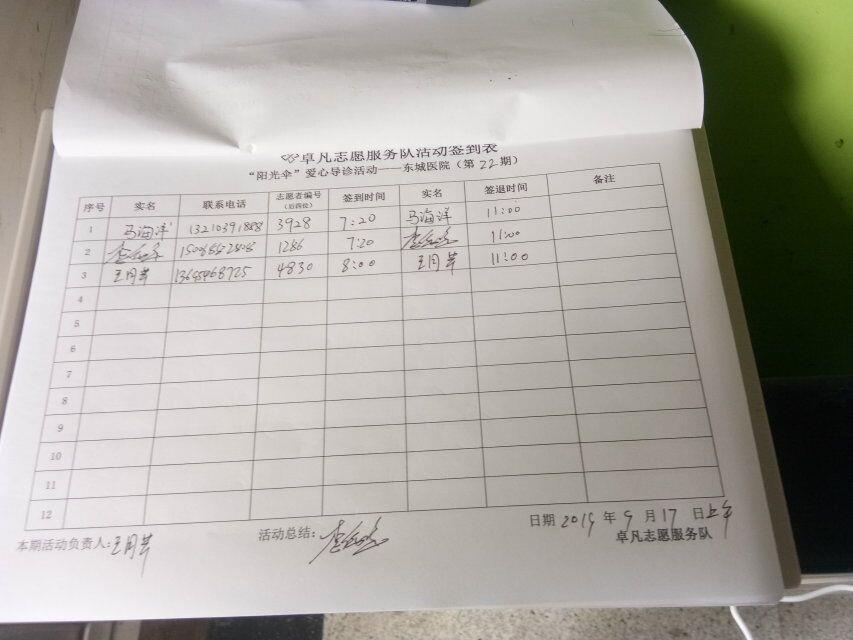 卓凡志愿服务队活动签到表
“阳光伞”爱心导诊活动——东城医院（第22期）
序号 实名 联系电话 志愿者编号（后四位） 签到时间 实名 签退时间 备注
1 马海洋 13210391888 3928 7:20 马海洋 11:00
2 1286 7:20 11:00
3 8:00 11:00 4830
4
5
6
7
8
9
10
11
12
本期活动负责人: 活动总结: 日期 2019年9月17日上午
卓凡志愿服务队